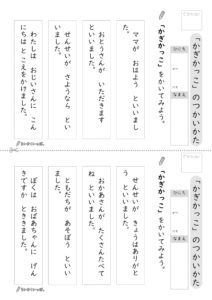 「かぎかっこ」のつかいかた
ひにち
なまえ
「かぎかっこ」をかいてみよう。
ママが おはよう といいまし
た。
おとうさんが いただきます
といいました。
せんせいが さようなら とい
いました。
わたしは おじいさんに こん
にちは とこえをかけました。
「かぎかっこ」のつかいかた
ひにち
なまえ
「かぎかっこ」をかいてみよう。
せんせいが きょうはありがと
う といいました。
おかあさんが たくさんたべて
ね といいました。
ともだちが あそぼう といい
ました。
ぼくは おばあちゃんに げん
きですか とききました。